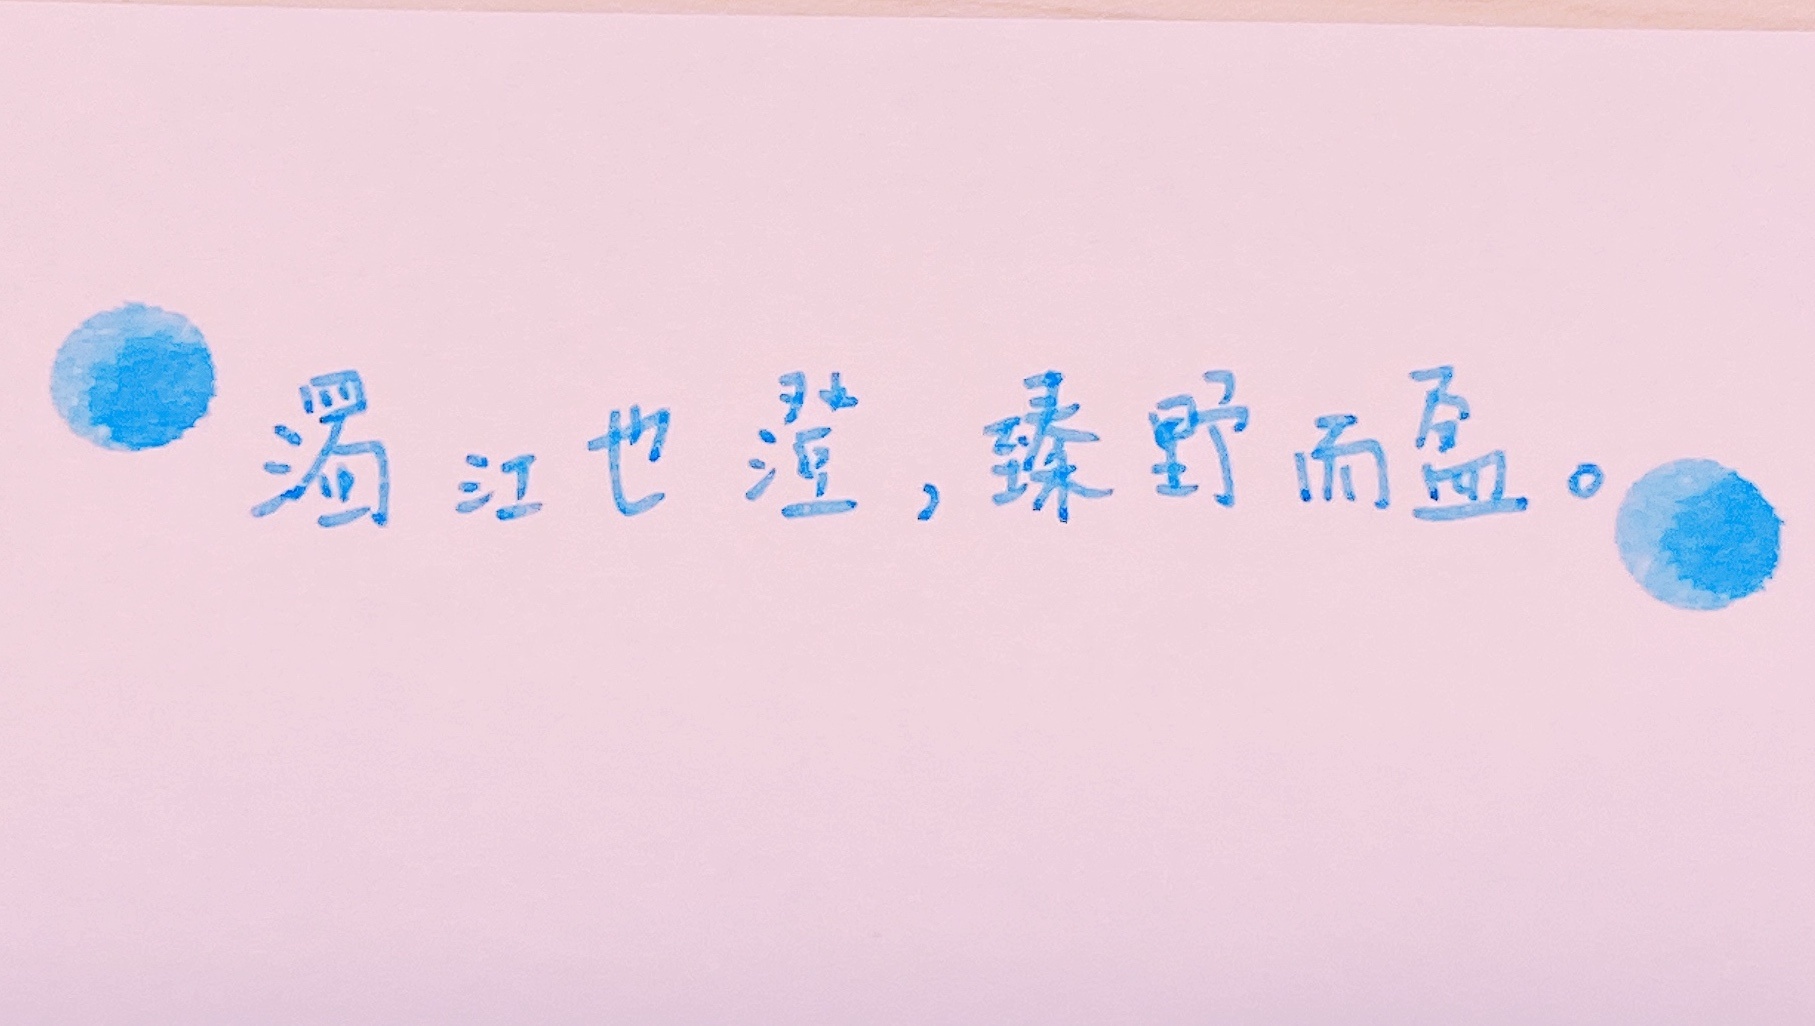 濁江也澄,臻野而盈。